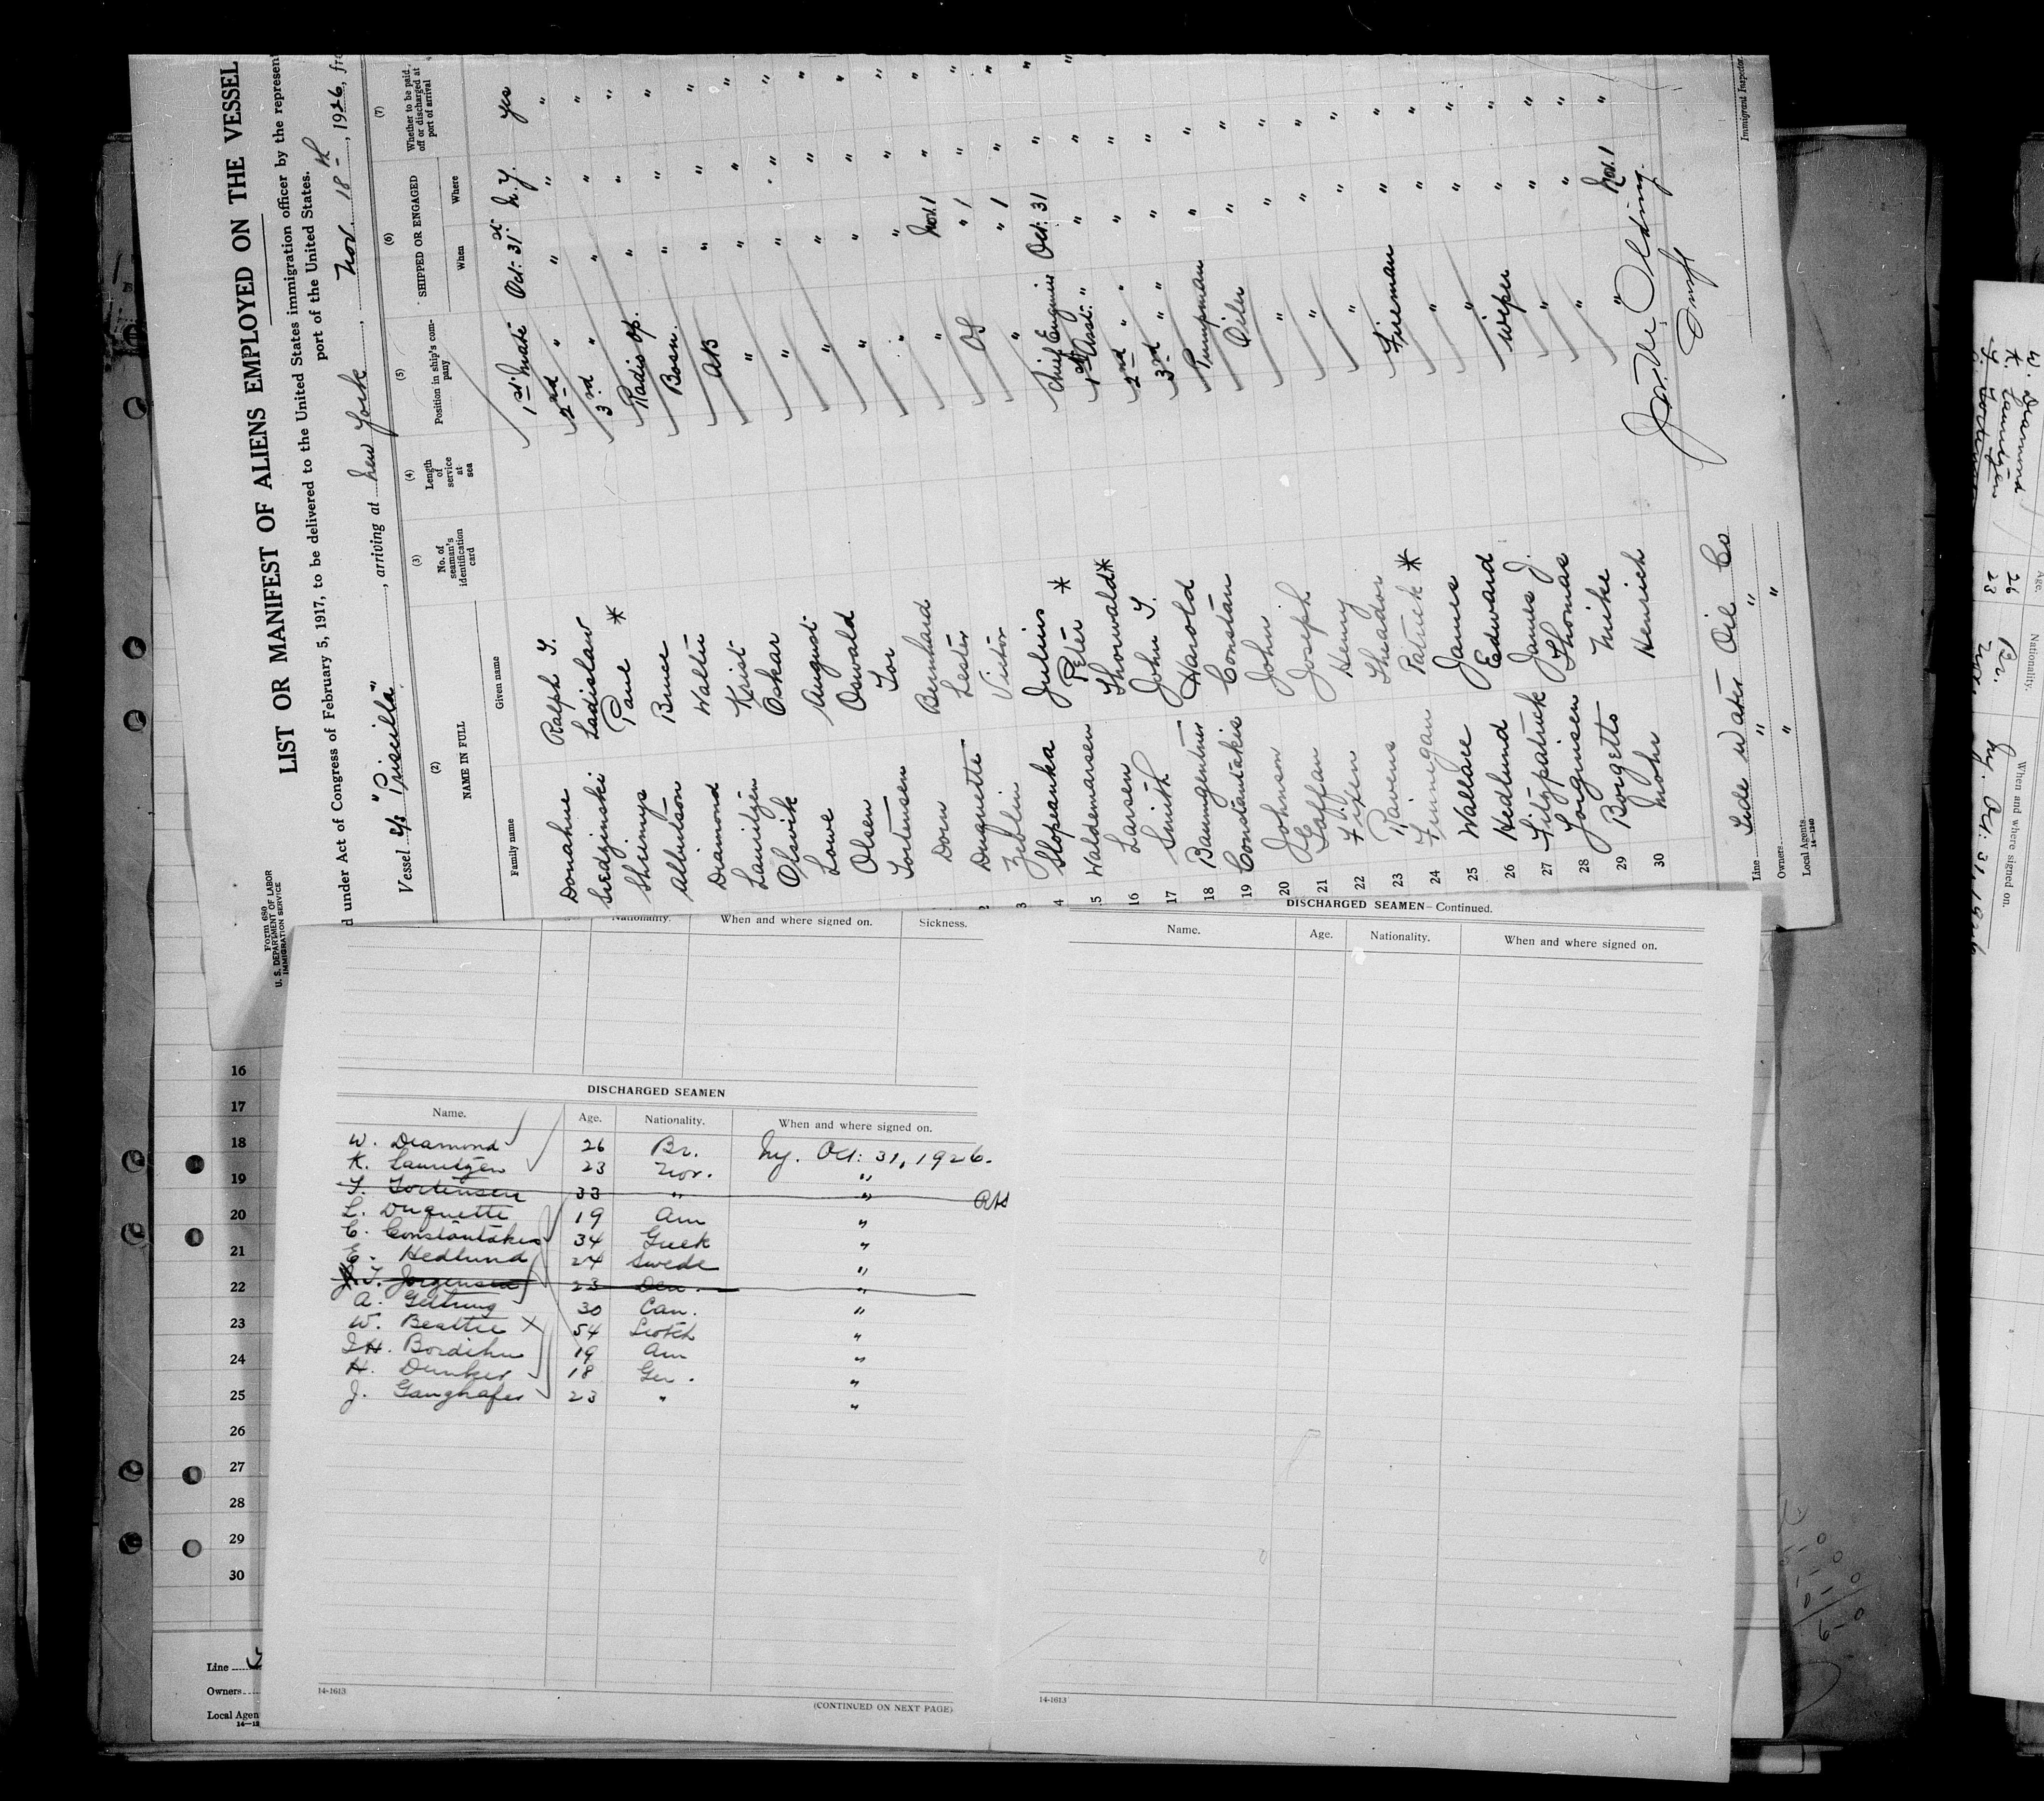 Form 680
U. S. DEPARTMENT OF LABOR
IMMIGRATION SERVICE
LIST OR MANIFEST OF ALIENS EMPLOYED ON THE VESSEL
d under Act of Congress of February 5, 1917, to be delivered to the United States immigration officer by the represent
port of the United States.
Vessel S/S "Priscilla", arriving at New York, Nov. 18th, 1926, fro
(2) (3) (4) (5) (6) (7)
NAME IN FULL
No. of seaman's identification card
Length of service at sea
Position in ship's company
SHIPPED OR ENGAGED
Whether to be paid off or discharged at port of arrival
Family name Given name When Where
Donahue Ralph T. 1st Mate Oct. 31st N.Y. yes
Ladislaw 2nd " " " "
Paul * 3rd " " " "
Bruce Radio Op. " " "
Diamond Walter Bosn. " " "
Lauritzen Krist AB " " "
Olsvik Oskar " " " "
Lowe August " " " "
Olsen Oswald " " " "
Tortensen Tor " " " "
Dorn Bernhard " Nov. 1 " "
Duquette Lester OS " 1 " "
Victor " " 1 " "
4 Slopeanka Julius Chief Engineer Oct. 31 " "
15 Waldemarsen Peter * 1st Asst. " " " "
16 Larsen Thorwald * 2nd " " " "
17 Smith John T. 3rd " " " "
18 Baumgentner Harold Pumpman " " "
19 Constantakis Constan Oiler " " "
20 Johnson John " " " "
21 Gaffan Joseph " " " "
22 Fixen Henry " " " "
23 Pavens Theador Fireman " " "
24 Finnegan Patrick * " " " "
25 Wallace James " " " "
26 Hedlund Edward Wiper " " "
27 Fitzpatrick James J. " " " "
28 Jorginsen Thomas " " " "
29 Borgetto Mike " Nov. 1 " "
30 Mohr Henrich
Line Tide Water Oil Co
Owners " " "
Local Agents " "
14-1240
Immigrant Inspector.
Nationality. When and where signed on. Sickness.
DISCHARGED SEAMEN
Name. Age. Nationality. When and where signed on.
W. Diamond 26 Br. Ny. Oct: 31, 1926.
K. Lauritzen 23 Nor. "
T. Tortensen 33 " "
L. Duquette 19 Am "
C. Constantakes 34 Greek "
E. Hedlund 24 Swede "
T. Jorgensen 23 Den. "
A. Gethung 30 Can. "
W. Beattie X 54 Scotch "
Bordihn 19 Am "
H. Dunker 18 Ger. "
J. Ganghafer 23 " "
14-1613
(CONTINUED ON NEXT PAGE)
DISCHARGED SEAMEN—Continued.
Name. Age. Nationality. When and where signed on.
14-1613
16
17
18
19
20
21
22
23
24
25
26
27
28
29
30
Line
Owners
Local Agen
Age. Nationality. When and where signed on.
W. Diamond 26 Br. Ny. Oct: 31, 1926
K. Lauritzen 23 Nor.